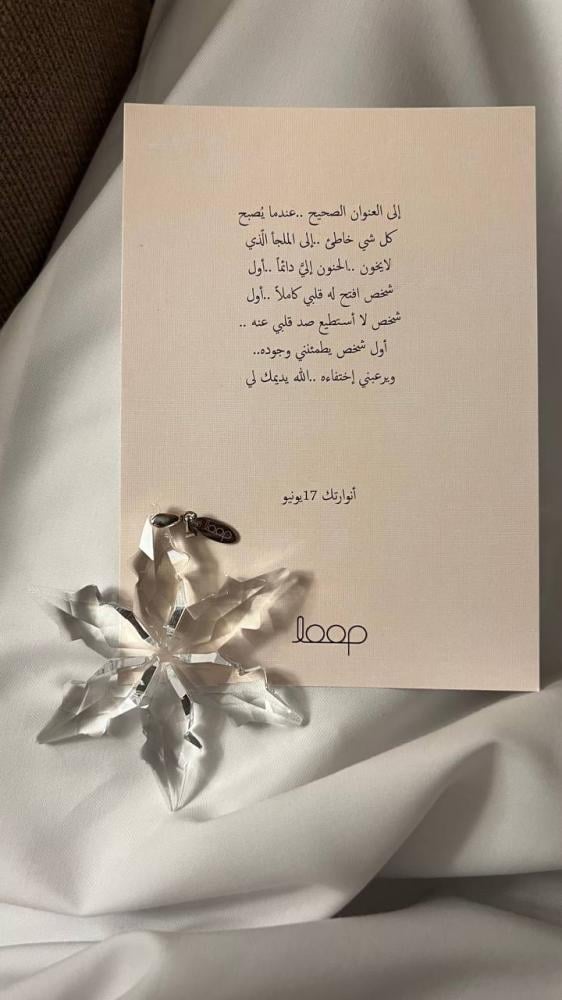 إلى العنوان الصحيح ..عندما يُصبح
كل شي خاطئ ..إلى الملجأ الّذي
لايخون ..الحنون إليَّ دائماً ..أول
شخص افتح له قلبي كاملاً ..أول
شخص لا أستطيع صد قلبي عنه ..
أول شخص يطمئنني وجوده..
ويرعبني إختفاءه ..الله يديمك لي
أنوارتك 17يونيو
loop
loop